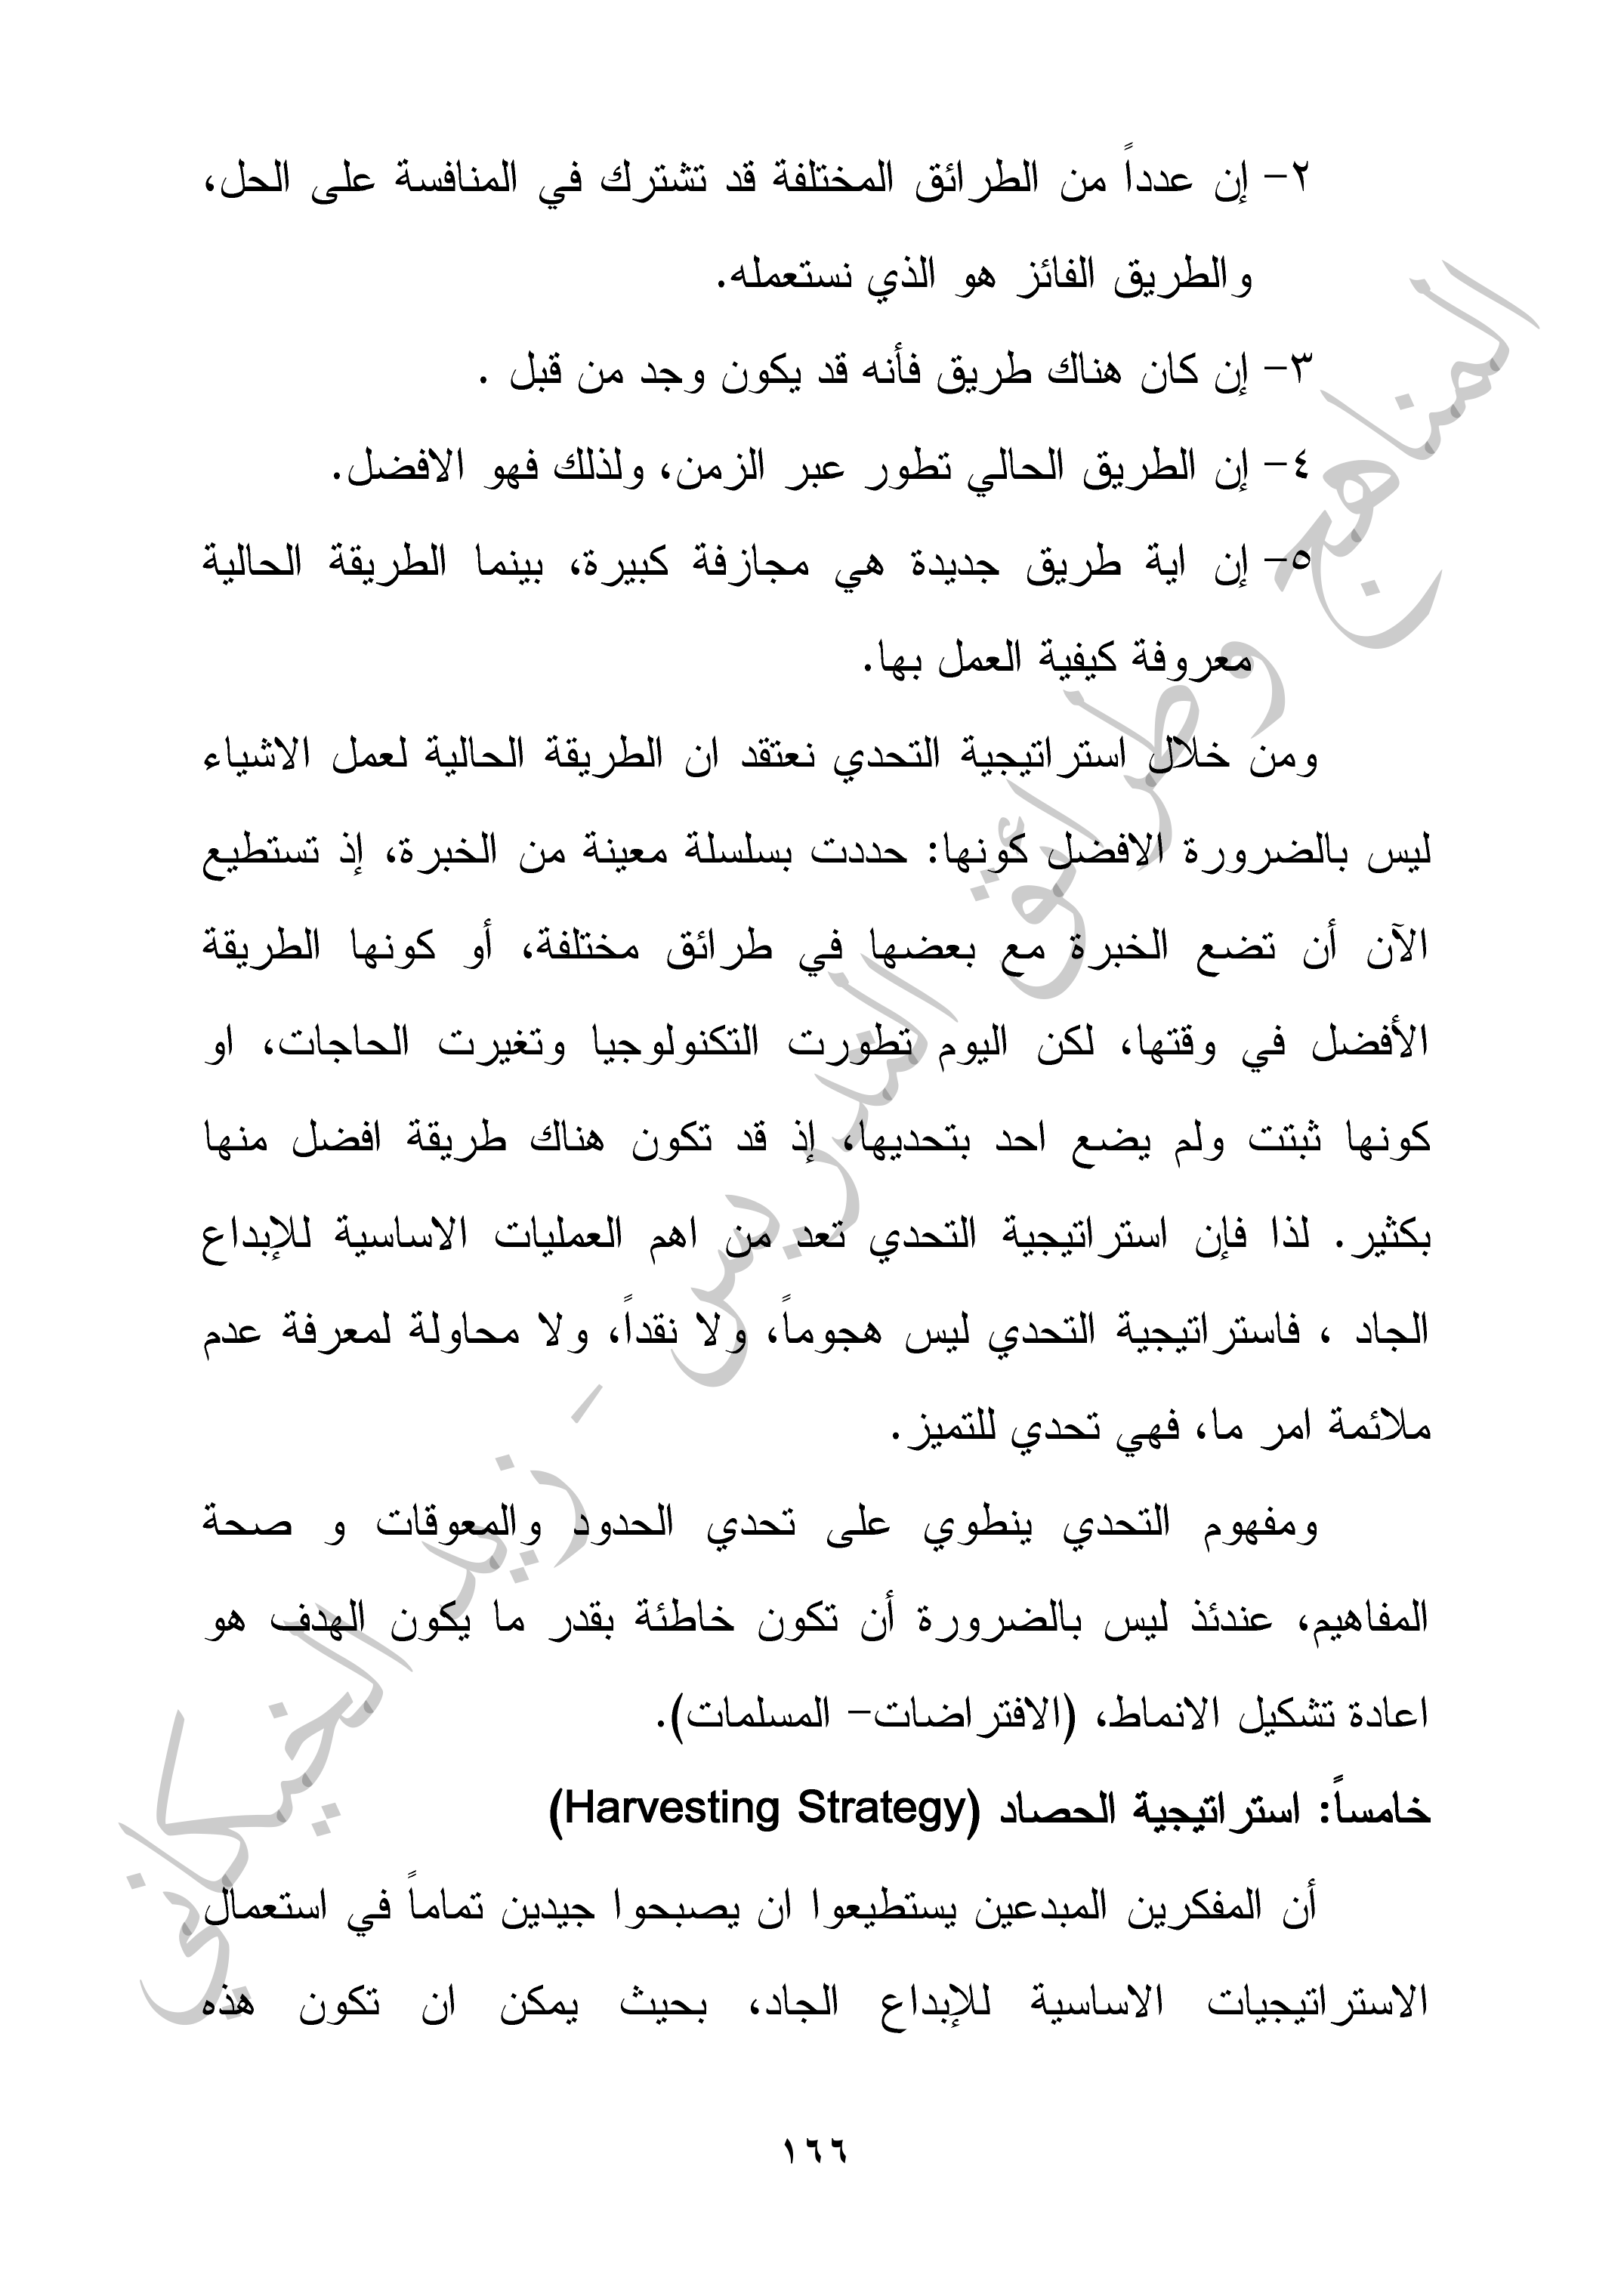 ٢- إن عدداً من الطرائق المختلفة قد تشترك في المنافسة على الحل،
والطريق الفائز هو الذي نستعمله.
٣- إن كان هناك طريق فأنه قد يكون وجد من قبل .
٤- إن الطريق الحالي تطور عبر الزمن، ولذلك فهو الافضل.
٥- إن اية طريق جديدة هي مجازفة كبيرة، بينما الطريقة الحالية
معروفة كيفية العمل بها.
ومن خلال استراتيجية التحدي نعتقد ان الطريقة الحالية لعمل الاشياء
ليس بالضرورة الافضل كونها: حددت بسلسلة معينة من الخبرة، إذ تستطيع
الآن أن تضع الخبرة مع بعضها في طرائق مختلفة، أو كونها الطريقة
الأفضل في وقتها، لكن اليوم تطورت التكنولوجيا وتغيرت الحاجات، او
كونها ثبتت ولم يضع احد بتحديها، إذ قد تكون هناك طريقة افضل منها
بكثير. لذا فإن استراتيجية التحدي تعد من اهم العمليات الاساسية للإبداع
الجاد ، فاستراتيجية التحدي ليس هجوماً، ولا نقداً، ولا محاولة لمعرفة عدم
ملائمة امر ما، فهي تحدي للتميز.
ومفهوم التحدي ينطوي على تحدي الحدود والمعوقات و صحة
المفاهيم، عندئذ ليس بالضرورة أن تكون خاطئة بقدر ما يكون الهدف هو
اعادة تشكيل الانماط، (الافتراضات- المسلمات).
خامساً: استراتيجية الحصاد (Harvesting Strategy)
أن المفكرين المبدعين يستطيعوا ان يصبحوا جيدين تماماً في استعمال
الاستراتيجيات الاساسية للإبداع الجاد، بحيث يمكن ان تكون هذه
١٦٦
المناهج وطرائق التدريس - زيد الخيكاني